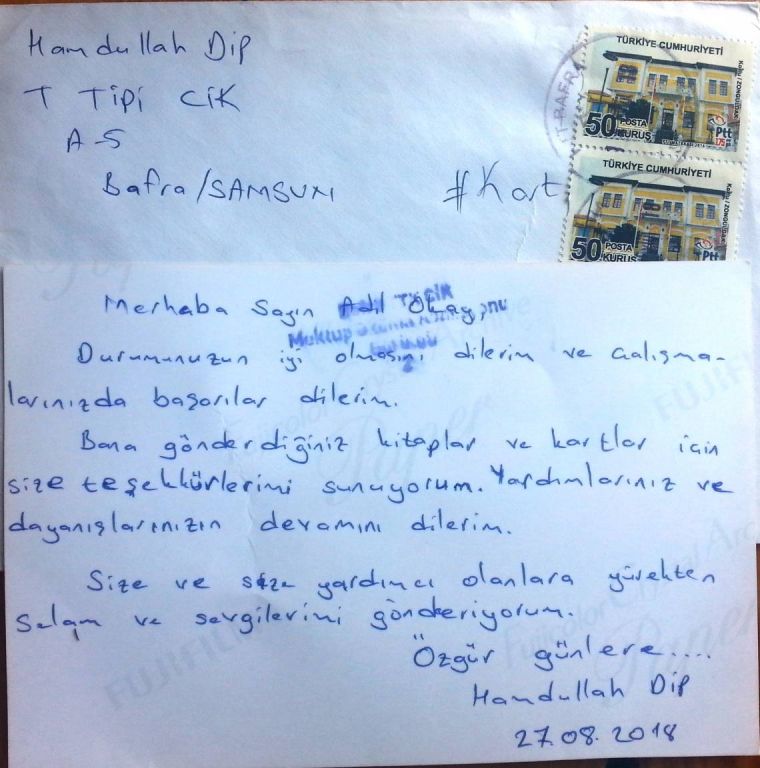 Hamdullah Dip
T Tipi CİK
A-5
Bafra/SAMSUN
#Kart
BAFRA
TÜRKİYE CUMHURİYETİ
50 POSTA KURUŞ
Ptt
TÜRKİYE CUMHURİYETİ
50 POSTA KURUŞ
Ptt
Merhaba Sayın Adil Okay,
Mektup
Durumunuzun iyi olmasını dilerim ve çalışma-
larınızda başarılar dilerim.
Bana gönderdiğiniz kitaplar ve kartlar için
size teşekkürlerimi sunuyorum. Yardımlarınız ve
dayanışlarınızın devamını dilerim.
Size ve size yardımcı olanlara yürekten
selam ve sevgilerimi gönderiyorum.
Özgür günlere....
Hamdullah Dip
27.08.2018
FUJIFILM
Fujicolor Crystal Archive
Paper